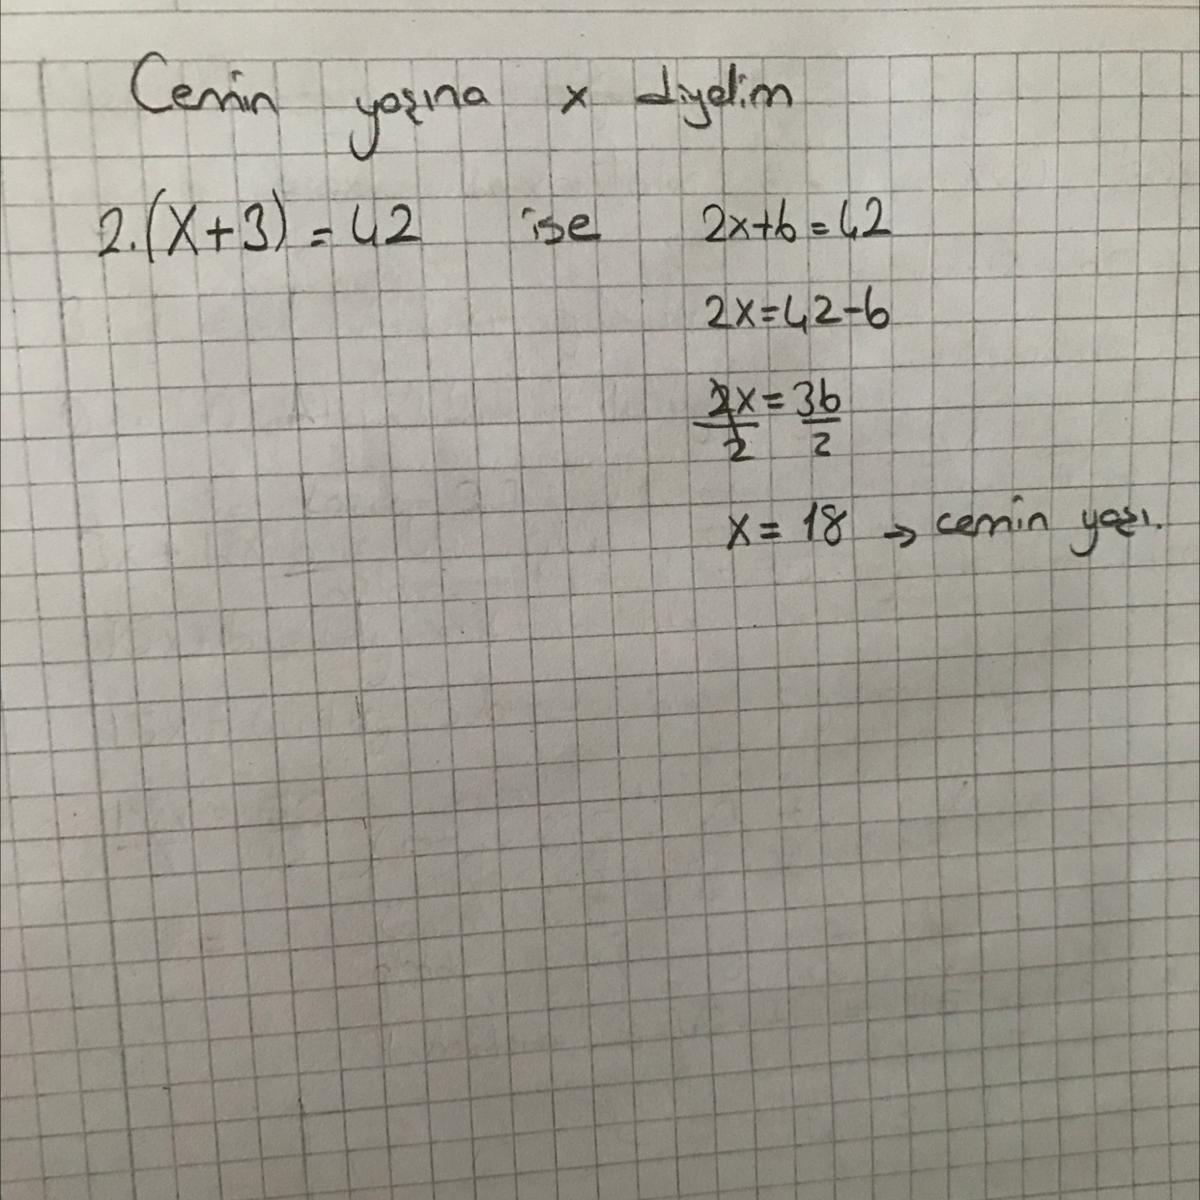 Cemin yaşına x diyelim
2.(x+3) = 42 ise 2x+6 = 42
2x = 42-6
2x/2 = 36/2
x = 18 → cemin yaşı.